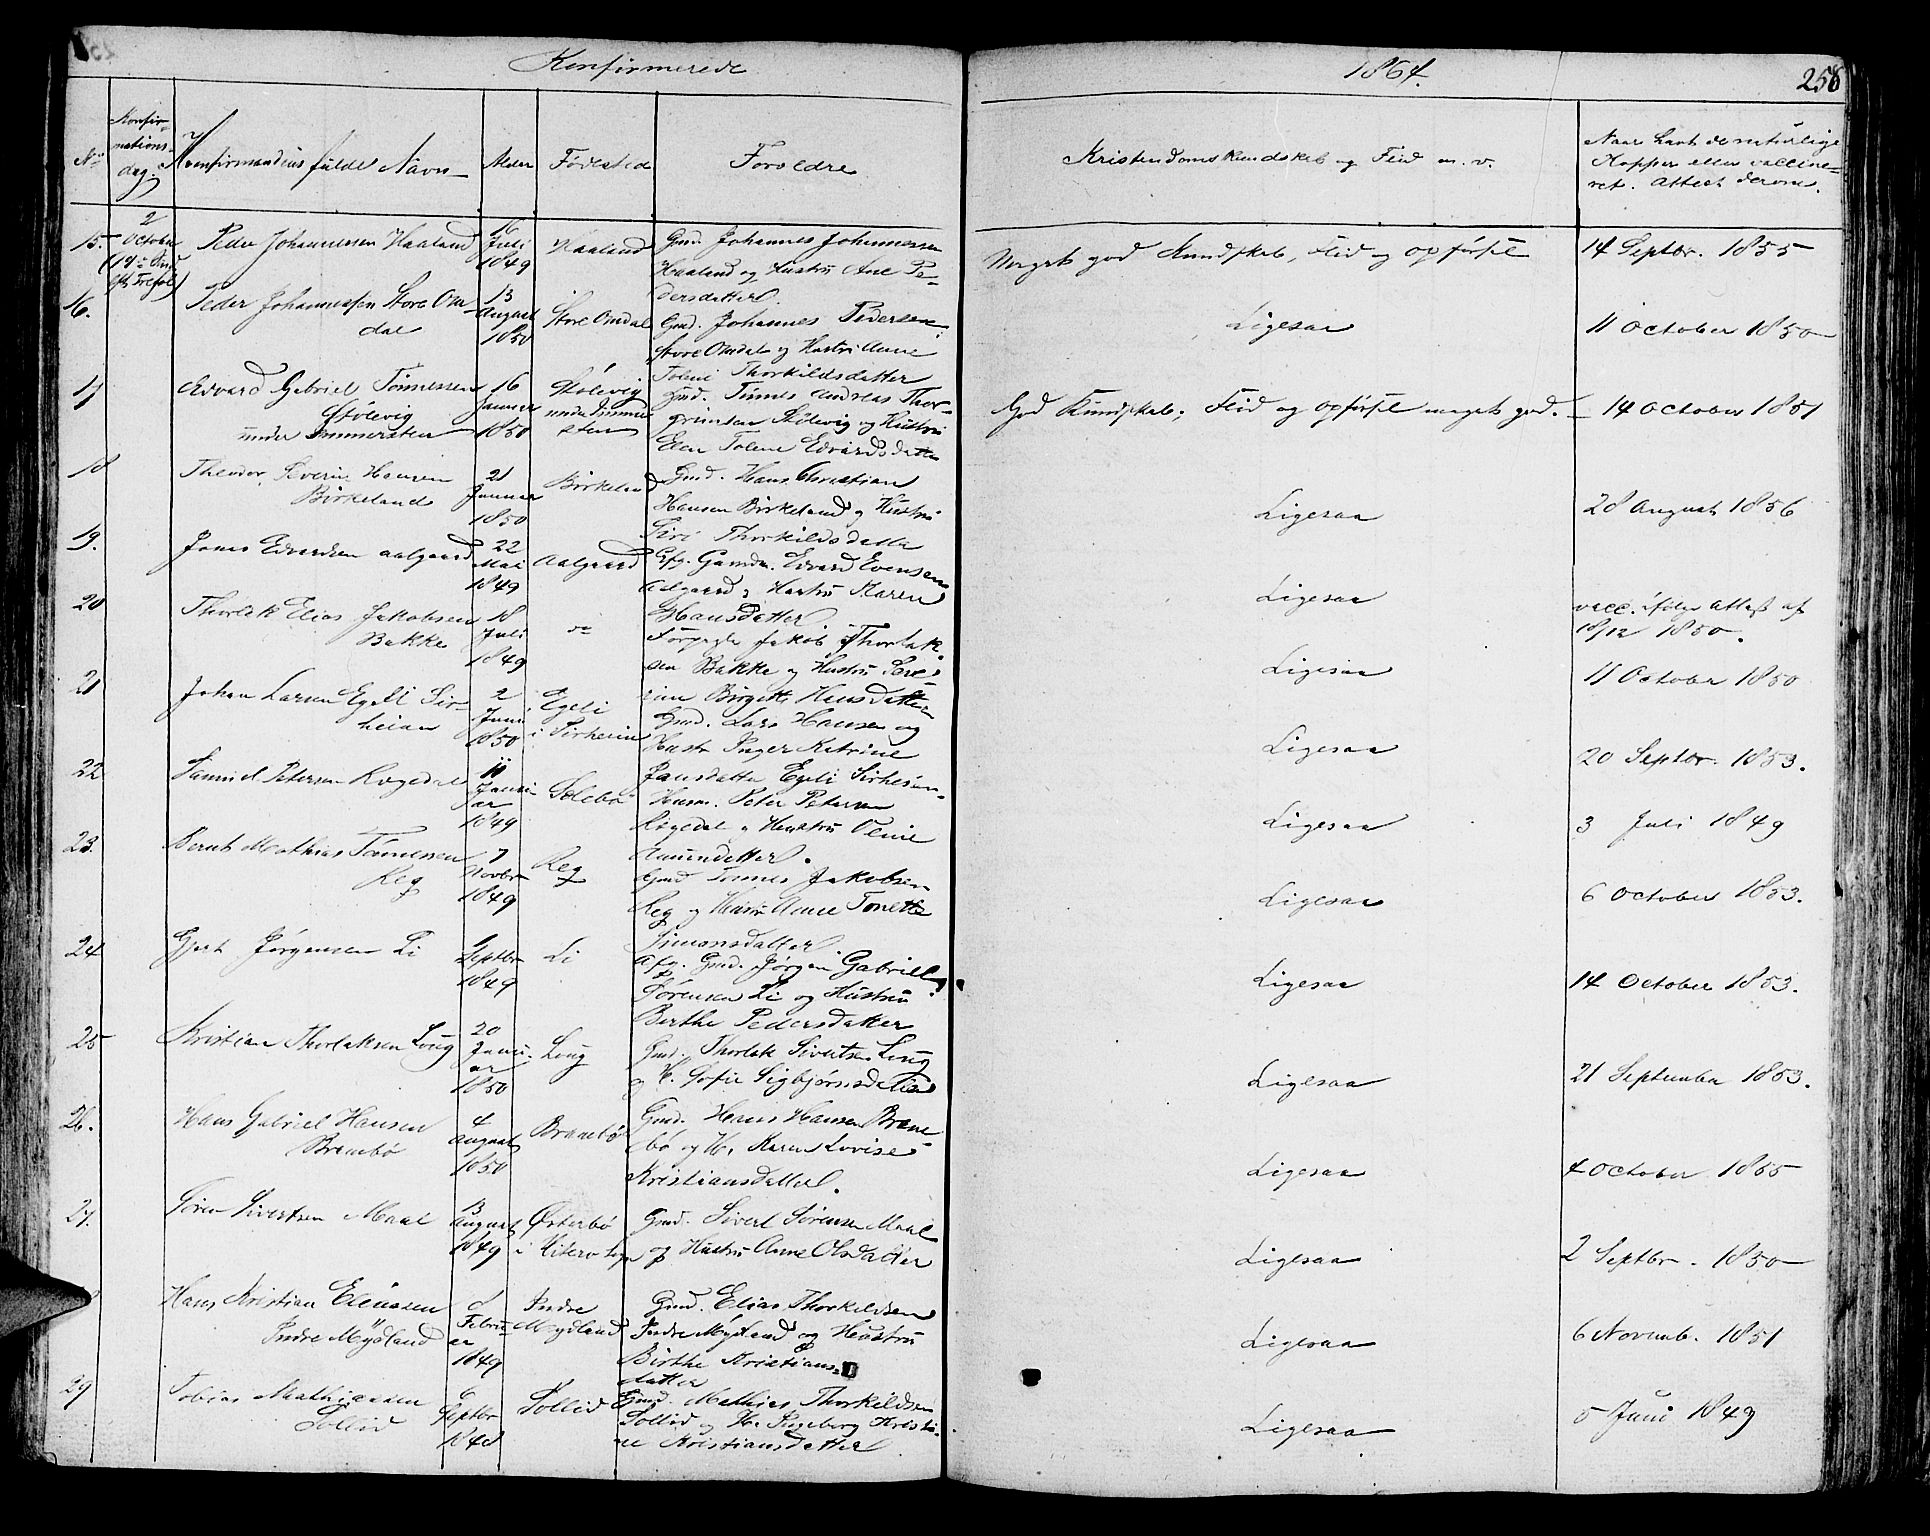 Konfirmerede
1864.
258
No
Konfir-
mations-
dag.
Konfirmandens fulde Navn
Alder
Fødested
Forældre
Kristendomskundskab og Flid m. v.
Naar havt de naturlige
Kopper eller vaccine-
ret. Attest derom.
15.
2
October
(19de Sønd
eft. Trefol.)
Peder Johannessen Haaland
16
Juli
1849
Haaland
Gmd. Johannes Johannessen
Haaland og Hustru Ane Pe-
dersdatter.
Meget god Kundskab, Flid og Opførsel
14 Septbr. 1855
16.
Peder Johannessen Store Om-
dal
13
August
1850
Store Omdal
Gmd. Johannes Pedersen
Store Omdal og Hustru Anne
Tolene Thorkildsdatter
Ligesaa
11 October 1850
17
Edvard Gabriel Tønnessen
Stølevig
under Immersten
16
Januar
1850
Stølevig
under Immer
sten
Gmd. Tønnes Andreas Thor-
grimsen Stølevig og Hustru
Elen Tolene Edvardsdatter
God Kundskab, Flid og Opførsel meget god.
14 October 1851
18
Theodor Severin Hansen
Birkeland
21
Januar
1850
Birkeland
Gmd. Hans Christian
Hansen Birkeland og Hustru
Siri Thorkildsdatter
Ligesaa
28 August 1856
19.
Jonas Edvardsen Aalgaard
22
Mai
1849
Aalgaard
Afg. Gaardm. Edvard Evensen
Aalgaard og Hustru Karen
Hansdatter.
Ligesaa
vacc. ifølge Attest af
18/12 1850.
20
Thorlak Elias Jakobsen
Bakke
18
Juli
1849
do
Jakob Thorlak-
sen Bakke og Hustru Seve-
rine Birgitte Hansdatter
Ligesaa
11 October 1850
21
Johan Larsen Egeli Sir-
heian
2
Juni
1850
Egeli
i Sirheien
Gmd. Lars Hansen og
Hustr. Inger Katrine
Jansdatter Egeli Sirheien.
Ligesaa
20 Septbr. 1853.
22
Samuel Petersen Røgedal
11
Janu-
ar
1849
Solebø
Husm. Peter Petersen
Røgedal og Hustru Oline
Amundatter.
Ligesaa
3 Juli 1849
23.
Bernt Mathias Tønnessen
Reg
7
Novbr
1849
Reg
Gmd Tønnes Jakobsen
Reg og Hustru Anne Tonette
Simonsdatter
Ligesaa
6 October 1853.
24
Gjert Jørgensen Li
9
Septbr
1849
Li
Afg. Gmd. Jørgen Gabriel
Sørensen Li og Hustru
Berthe Pedersdatter
Ligesaa
14 October 1853.
25
Kristian Thorlaksen Loug
20
Janu-
ar
1850
Loug
Gmd. Thorlak Sivertsen Loug
og H. Sofie Sigbjørnsdatter
Ligesaa
21 September 1853.
26.
Hans Gabriel Hansen
Brambø
4
August
1850
Brambø
Gmd. Hans Hansen Bram-
bø og H. Karen Lovise
Kristiansdatter.
Ligesaa
4 October 1855
27.
Søren Sivertsen Maal
13
August
1849
Østerbø
i Hiterø Sogn
Gmd. Sivert Sørensen Maal
og Hustru Anne Olsdatter
Ligesaa
2 Septbr. 1850
Hans Kristian Eliassen
Indre Mydland
8
Febru-
ar
1849
Indre
Mydland
Gmd. Elias Thorkildsen
Indre Mydland og Hustru
Birthe Kristians-
datter
Ligesaa
6 Novemb. 1851
29
Tobias Mathiassen
Sollid
6
Septbr
1848
Sollid
Gmd. Mathias Thorkildsen
Sollid og H. Ingeborg Kristi-
ne Kristiansdatter.
Ligesaa
5 Juni 1849